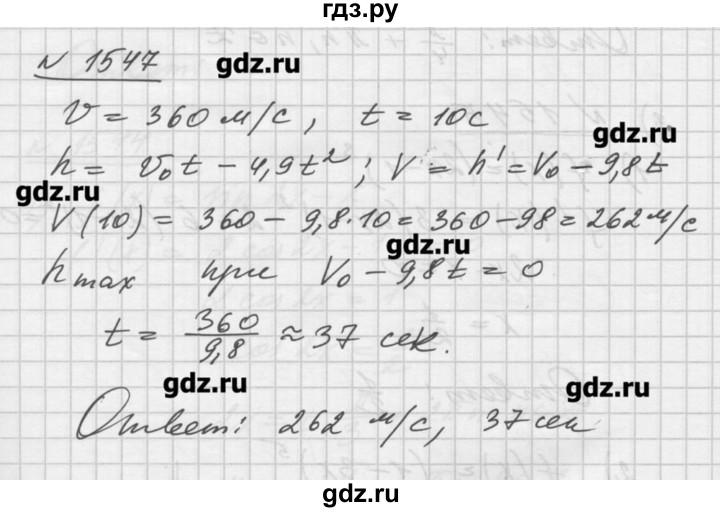 гдз.ру
№ 1547
gdz.ru
v = 360 м/с, t = 10с
gdz.ru
h = v₀t − 4,9t²; V = h' = V₀ − 9,8t
gdz.ru
V(10) = 360 − 9,8·10 = 360 − 98 = 262 м/с
gdz.ru
h max при V₀ − 9,8t = 0
t = 360/9,8 ≈ 37 сек.
gdz.ru
gdz.ru
Ответ: 262 м/с, 37 сек
gdz.ru